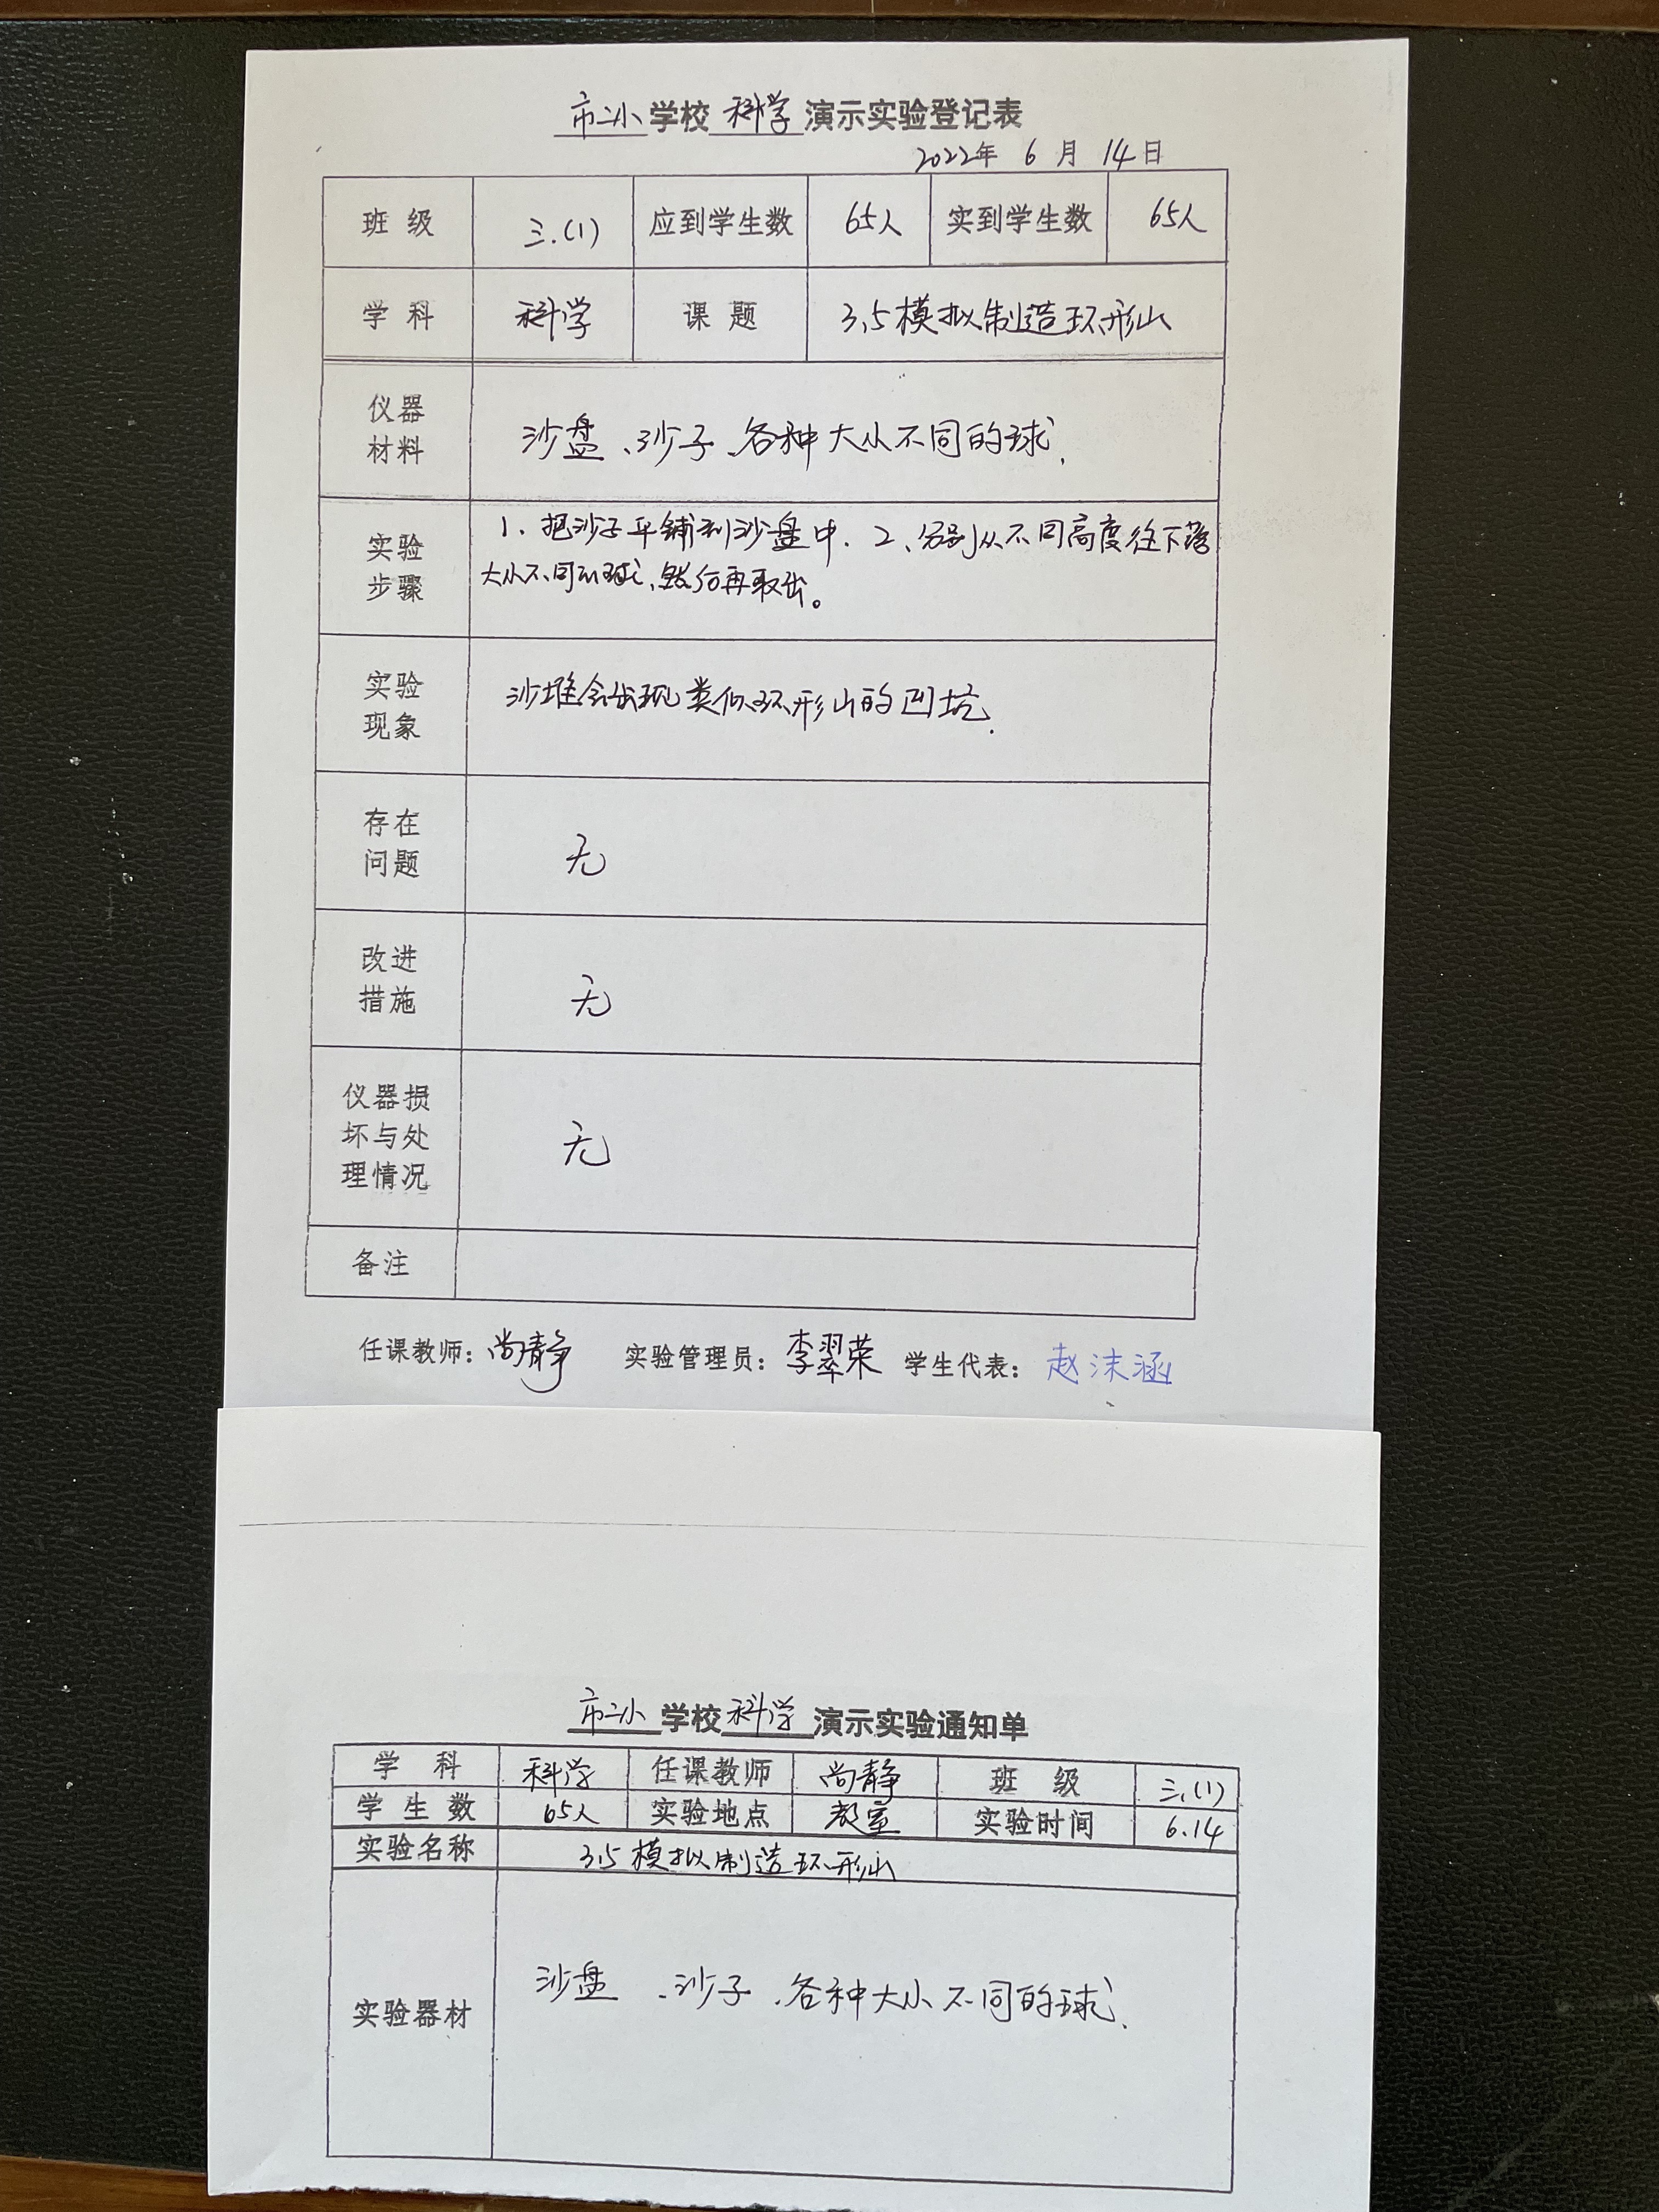 市二小学校科学演示实验登记表
2022年 6 月 14日
班 级 三.(1) 应到学生数 65人 实到学生数 65人
学 科 科学 课 题 3.5模拟制造环形山
仪器
材料
沙盘、沙子、各种大小不同的球.
实验
步骤
1、把沙子平铺到沙盘中. 2、分别从不同高度往下落
大小不同的球,然后再取出。
实验
现象
沙堆会出现类似环形山的凹坑.
存在
问题
无
改进
措施
无
仪器损
坏与处
理情况
无
备注
任课教师：尚静 实验管理员：李翠荣 学生代表：赵沫涵
市二小学校科学演示实验通知单
学 科 科学 任课教师 尚静 班 级 三.(1)
学 生 数 65人 实验地点 教室 实验时间 6.14
实验名称 3.5模拟制造环形山
实验器材 沙盘、沙子、各种大小不同的球.